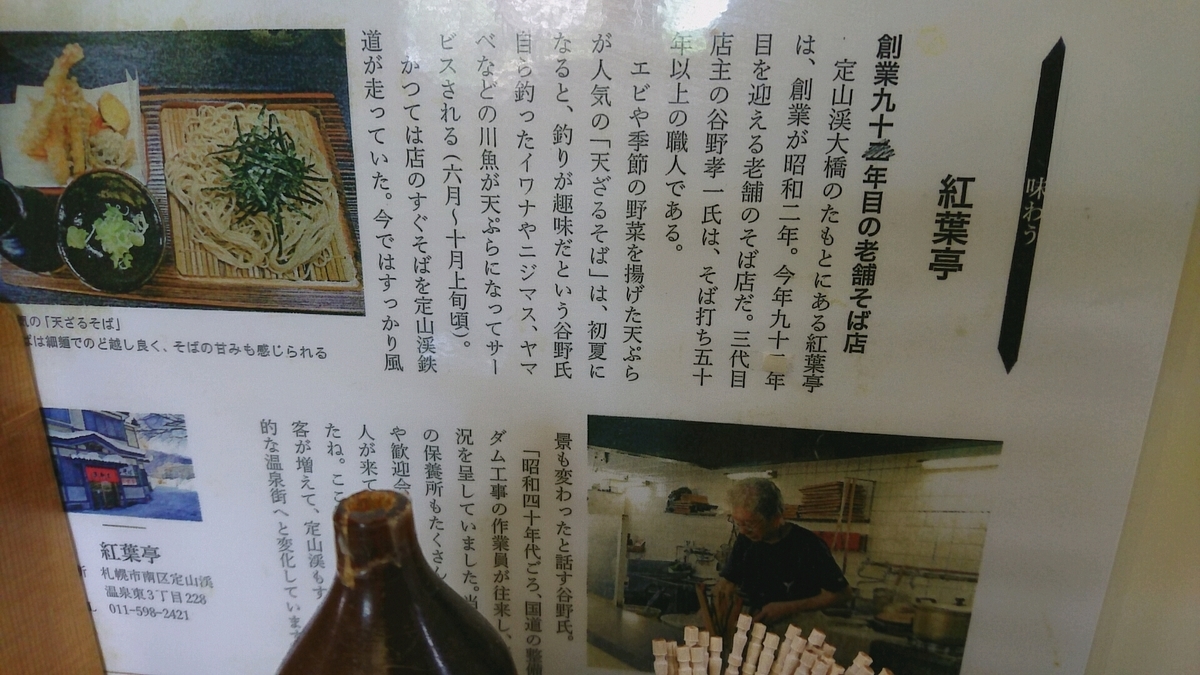 味わう
紅葉亭
創業九十年目の老舗そば店
定山渓大橋のたもとにある紅葉亭
は、創業が昭和二年。今年九十一年
目を迎える老舗のそば店だ。三代目
店主の谷野孝一氏は、そば打ち五十
年以上の職人である。
エビや季節の野菜を揚げた天ぷら
が人気の「天ざるそば」は、初夏に
なると、釣りが趣味だという谷野氏
自ら釣ったイワナやニジマス、ヤマ
ベなどの川魚が天ぷらになってサー
ビスされる（六月〜十月上旬頃）。
かつては店のすぐそばを定山渓鉄
道が走っていた。今ではすっかり風
景も変わったと話す谷野氏。
「昭和四十年代ごろ、国道の整備
ダム工事の作業員が往来し、
況を呈していました。当
の保養所もたくさん
や歓迎会
人が来て
たね。ここ
客が増えて、定山渓もす
的な温泉街へと変化しています
気の「天ざるそば」
ばは細麺でのど越し良く、そばの甘みも感じられる
紅葉亭
所 札幌市南区定山渓
温泉東3丁目228
011-598-2421